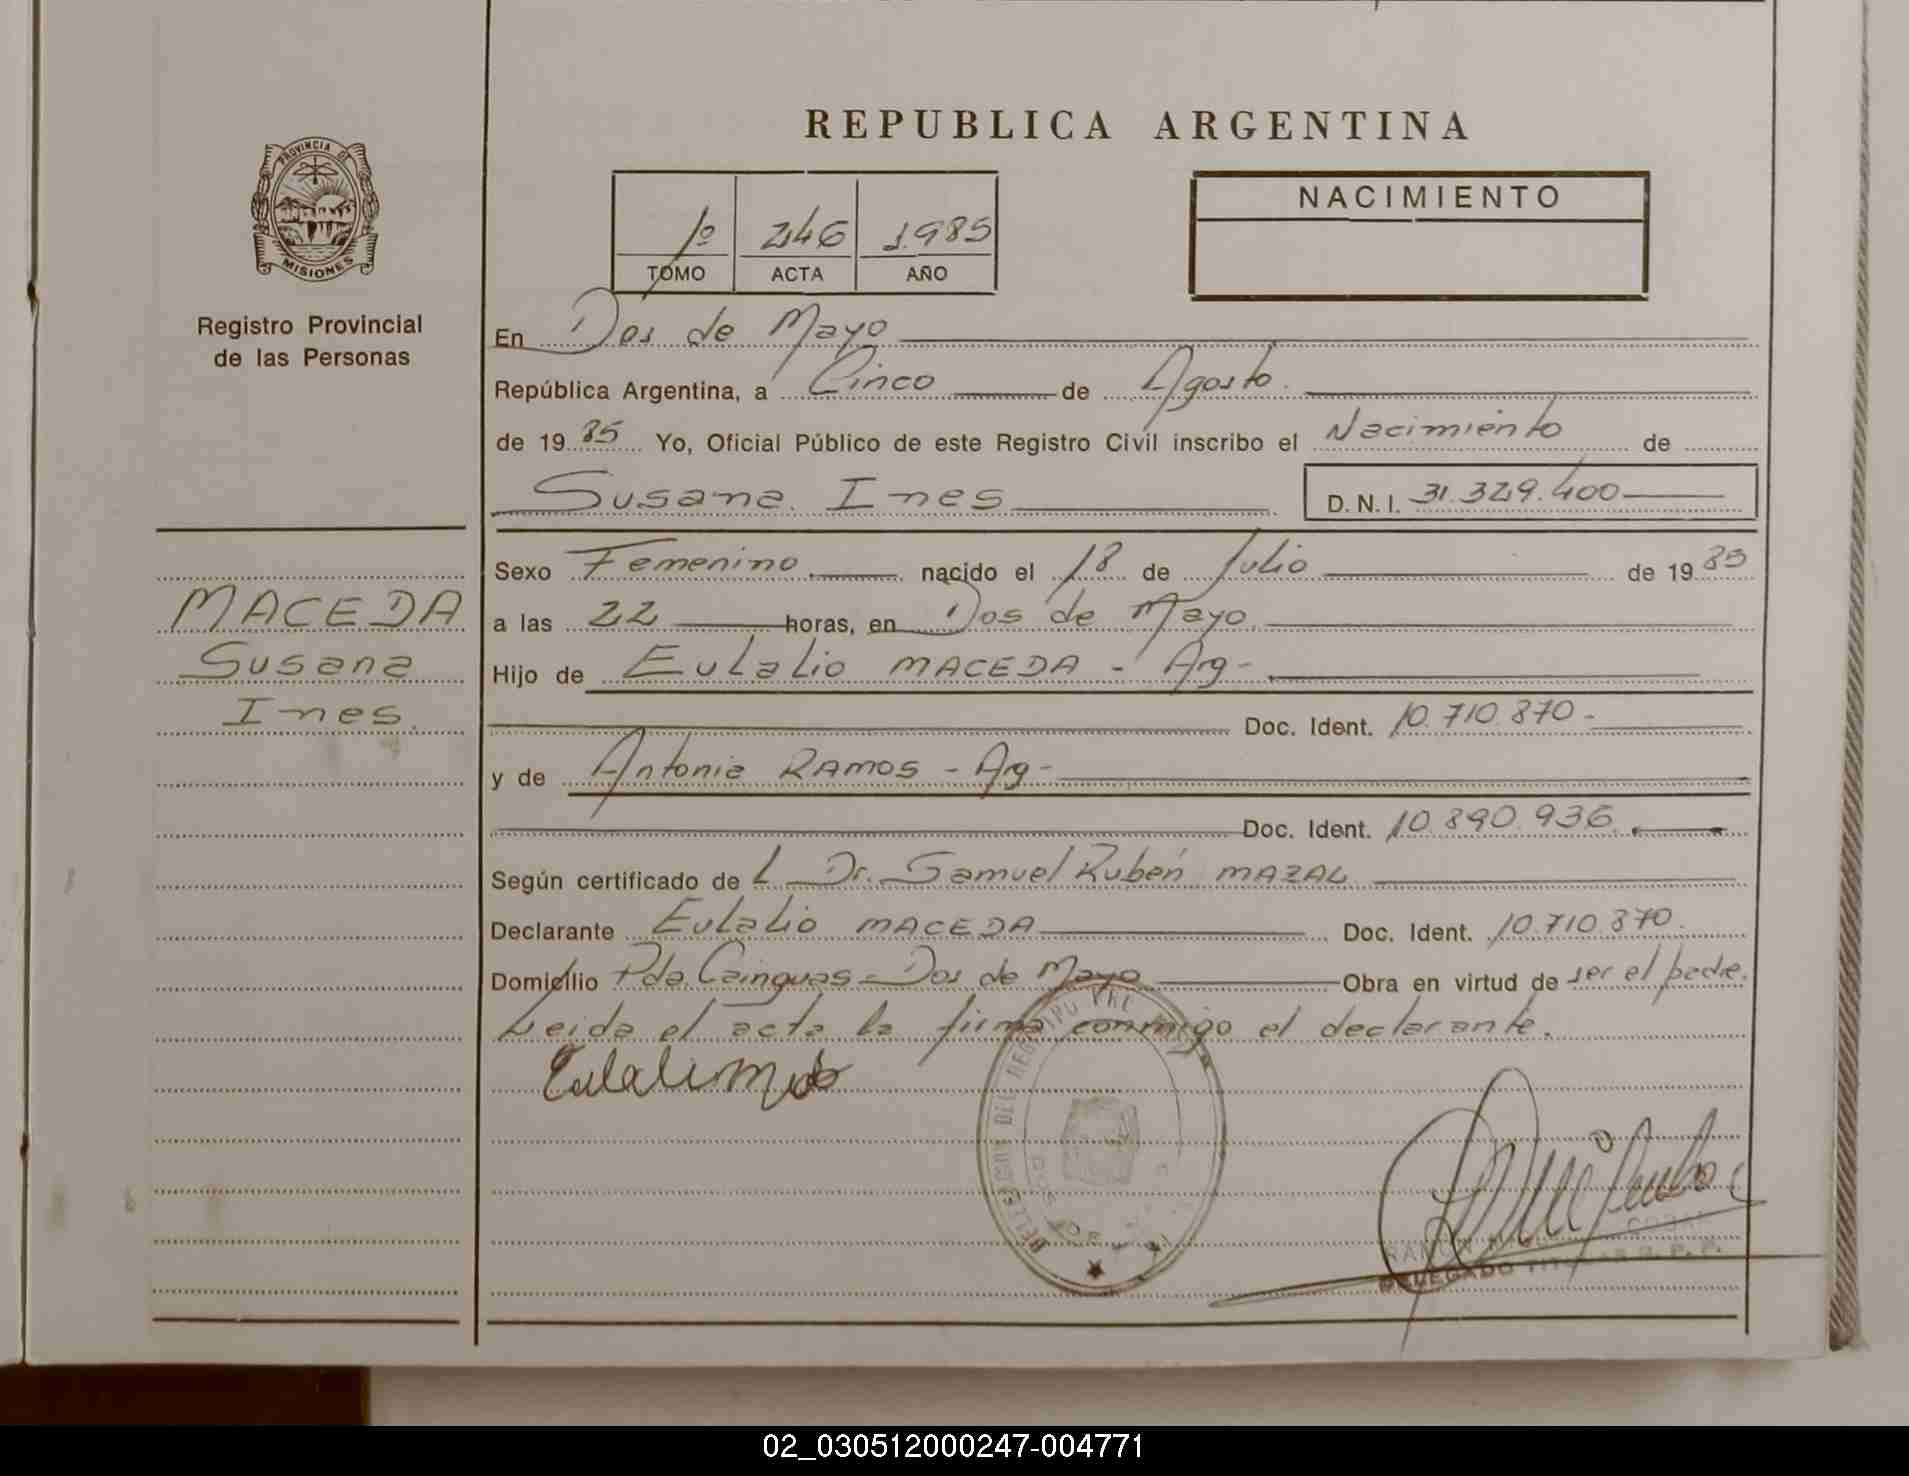 REPUBLICA ARGENTINA
PROVINCIA DE
MISIONES
Registro Provincial
de las Personas
1º 246 1985
TOMO ACTA AÑO
NACIMIENTO
En Dos de Mayo
República Argentina, a Cinco de Agosto.
de 1985 Yo, Oficial Público de este Registro Civil inscribo el Nacimiento de
Susana Ines D.N.I. 31.329.400
MACEDA
Susana
Ines.
Sexo Femenino nacido el 18 de Julio de 1985
a las 22 horas, en Dos de Mayo.
Hijo de Eulalio MACEDA - Arg -
Doc. Ident. 10.710.870-
y de Antonia RAMOS - Arg -
Doc. Ident. 10.890.936
Según certificado de L Dr. Samuel Rubén MAZAL
Declarante Eulalio MACEDA Doc. Ident. 10.710.870.
Domicilio Pda. Cainguas - Dos de Mayo Obra en virtud de ser el padre.
Leida el acta la firma conmigo el declarante.
RAMON
DELEGADO TITULAR R. P. P.
02_030512000247-004771